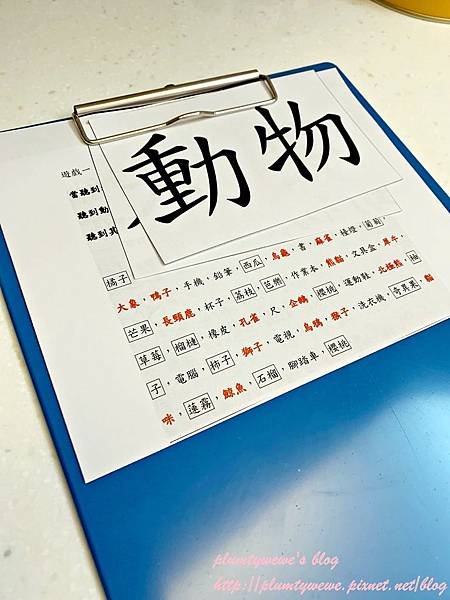 動物
遊戲一
當聽到
聽到動
聽到其
橘子
大象，鴨子，手機，鉛筆，西瓜，烏龜，書，麻雀，檯燈，葡萄，
芒果，長頸鹿，杯子，荔枝，芭樂，作業本，熊貓，文具盒，犀牛，
草莓，榴槤，橡皮，孔雀，尺，企鵝，櫻桃，運動鞋，北極熊，柚
子，電腦，柿子，獅子，電視，烏鴉，猴子，洗衣機，奇異果，貓
咪，蓮霧，鯨魚，石榴，腳踏車，櫻桃
plumtywewe's blog
http://plumtywewe.pixnet.net/blog